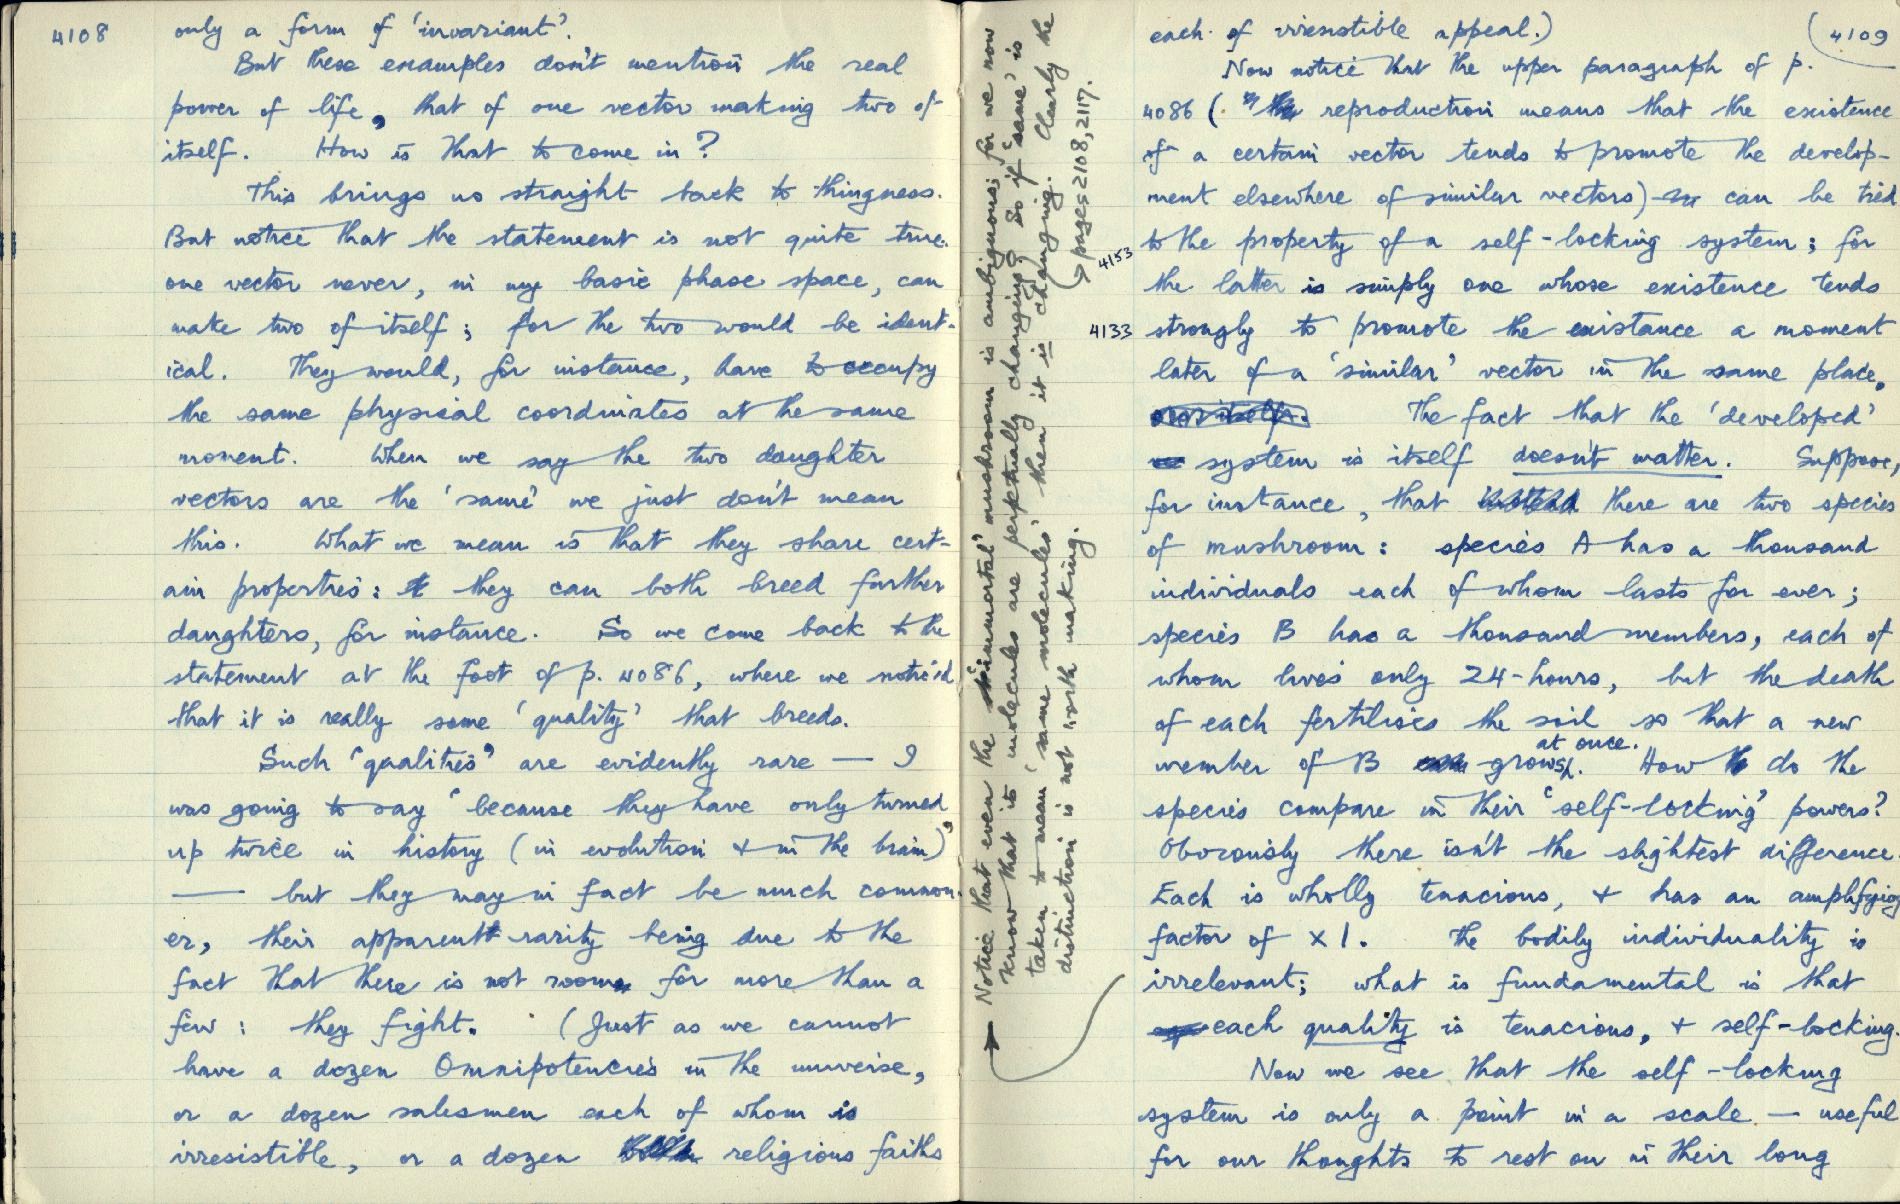 4108
only a form of 'invariant'.
But these examples don't mention the real
power of life, that of one vector making two of
itself. How is that to come in?
This brings us straight back to thingness.
But notice that the statement is not quite true:
one vector never, in my basic phase space, can
make two of itself; for the two would be ident-
ical. They would, for instance, have to occupy
the same physical coordinates at the same
moment. When we say the two daughter
vectors are the 'same' we just don't mean
this. What we mean is that they share cert-
ain properties: they can both breed further
daughters, for instance. So we come back to the
statement at the foot of p. 4086, where we notic'd
that it is really some 'quality' that breeds.
Such 'qualities' are evidently rare — I
was going to say 'because they have only turned
up twice in history (in evolution & in the brain)'
— but they may in fact be much common-
er, their apparent rarity being due to the
fact that there is not room for more than a
few: they fight. (Just as we cannot
have a dozen Omnipotencies in the universe,
or a dozen salesmen each of whom is
irresistible, or a dozen religious faiths
Notice that even the 'immortal' mushroom is ambiguous; for we now
know that its 'molecules are perpetually changing; so if 'same' is
taken to mean 'same molecules' then it is changing. Clearly the
distinction is not worth making.
→ pages 2108, 2117.
4109
each of irresistible appeal.)
Now notice that the upper paragraph of p.
4086 (: "reproduction means that the existence
of a certain vector tends to promote the develop-
ment elsewhere of similar vectors) can be tied
4153
to the property of a self-locking system; for
the latter is simply one whose existence tends
4133
strongly to promote the existance a moment
later of a 'similar' vector in the same place.
The fact that the 'developed'
system is itself doesn't matter. Suppose,
for instance, that there are two species
of mushroom: species A has a thousand
individuals each of whom lasts for ever;
species B has a thousand members, each of
whom lives only 24-hours, but the death
of each fertilises the soil so that a new
member of B grows at once. How do the
species compare in their 'self-locking' powers?
Obviously there isn't the slightest difference.
Each is wholly tenacious, & has an amplifying
factor of x 1. The bodily individuality is
irrelevant; what is fundamental is that
each quality is tenacious, & self-locking.
Now we see that the self-locking
system is only a point in a scale — useful
for our thoughts to rest on in their long